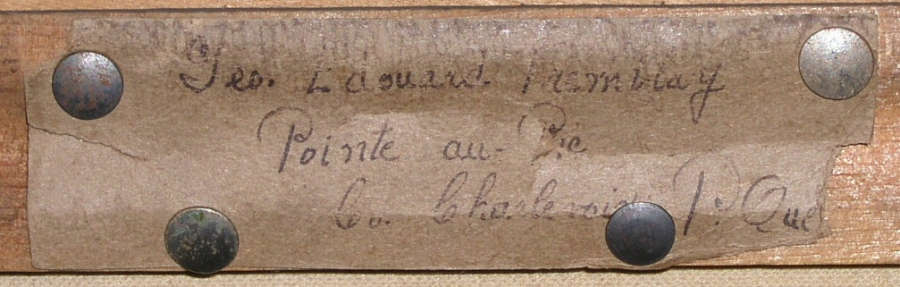 Geo. Edouard Tremblay
Pointe au-Pic
Co. Charlevoix P. Que